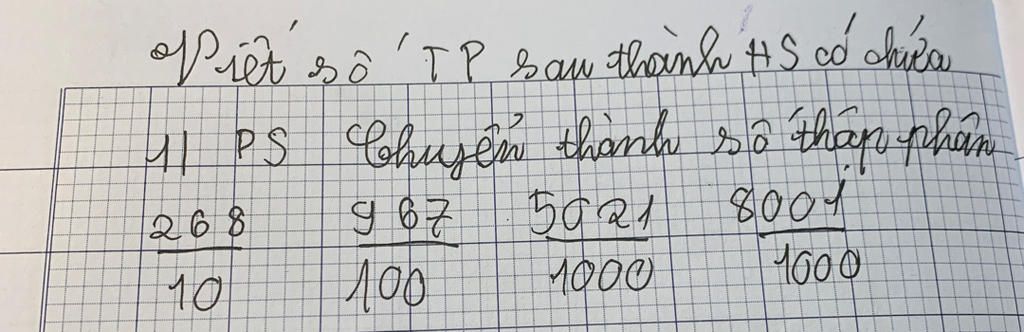 Viết số TP sau thành HS có chứa
1) PS Chuyển thành số thập phân
268/10 967/100 5021/1000 8001/1000